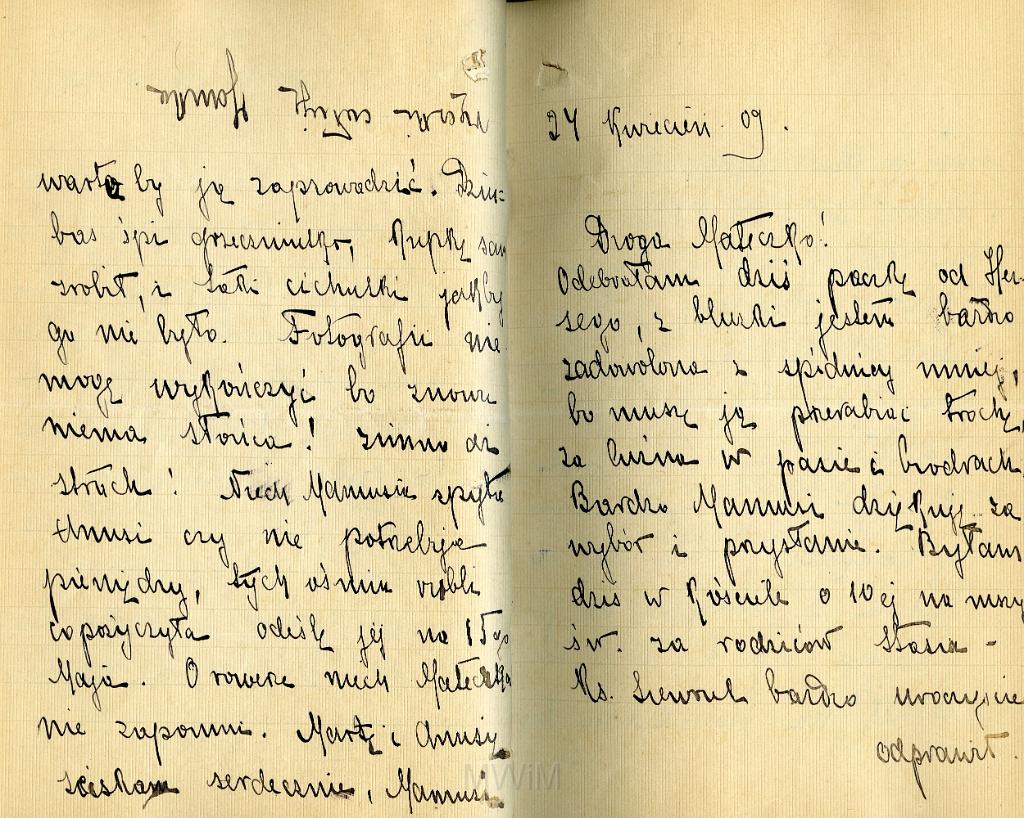 24 Kwiecień 09.
Droga Mateczko!
Odebrałam dziś paczkę od
sego, z bluzki jestem bardzo
zadowolona z spódnicy mniej,
bo muszę ją przerabiać trochę,
za luźna w pasie i biodrach
Bardzo Mamusi dziękuję za
wybór i przysłanie. Byłam
dziś w kościele o 10ej na mszy
św. za rodziców Stasia -
Ks. bardzo uroczyście
odprawił.
warto by ją zaprowadzić. Dziu-
bas śpi grzeczniutko, kupkę sam
zrobił, i taki cichutki jakby
go nie było. Fotografii nie
mogę wykończyć bo znowu
niema słońca! zimno aż
strach! Niech Mamusia spyta
Anusi czy nie potrzebuje
pieniędzy, tych ośmiu rubli
co pożyczyła odeślę jej na 15go
Maja. O rowerze niech Mateczka
nie zapomni. Martę i Anusię
ściskam serdecznie, Mamusi
rączki całuję Hanka
MWiM